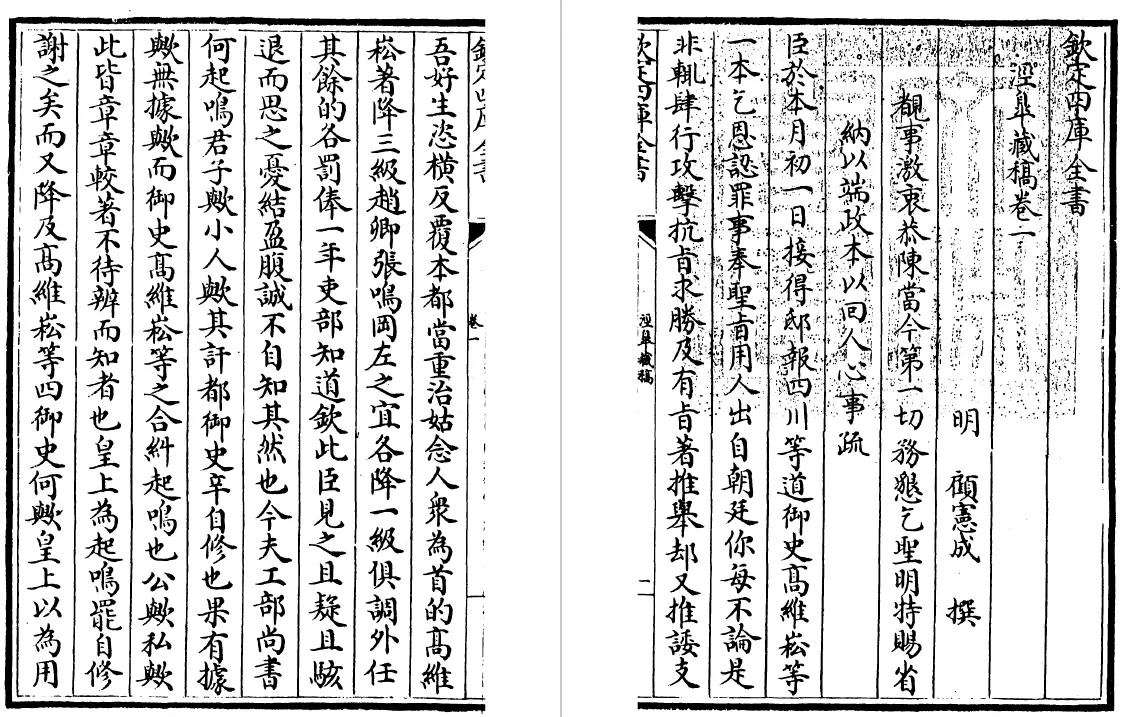 欽定四庫全書
涇臯藏稿卷一
明 顧憲成 撰
覩事激衷恭陳當今第一切務懇乞聖明特賜省
納以端政本以回人心事疏
臣於本月初一日接得邸報四川等道御史髙維崧等
一本乞恩認罪事奉聖㫖用人出自朝廷你每不論是
非輒肆行攻擊抗㫖求勝及有㫖著推舉却又推諉支
欽定四庫全書 涇臯藏稿 一
欽定四庫全書 卷一
吾好生恣横反覆本都當重治姑念人衆為首的髙維
崧著降三級趙卿張鳴岡左之宜各降一級俱調外任
其餘的各罰俸一年吏部知道欽此臣見之且疑且駭
退而思之憂結盈腹誠不自知其然也今夫工部尚書
何起鳴君子歟小人歟其訐都御史辛自修也果有據
歟無據歟而御史髙維崧等之合糾起鳴也公歟私歟
此皆章章較著不待辨而知者也皇上為起鳴罷自修
謝之矣而又降及髙維崧等四御史何歟皇上以為用